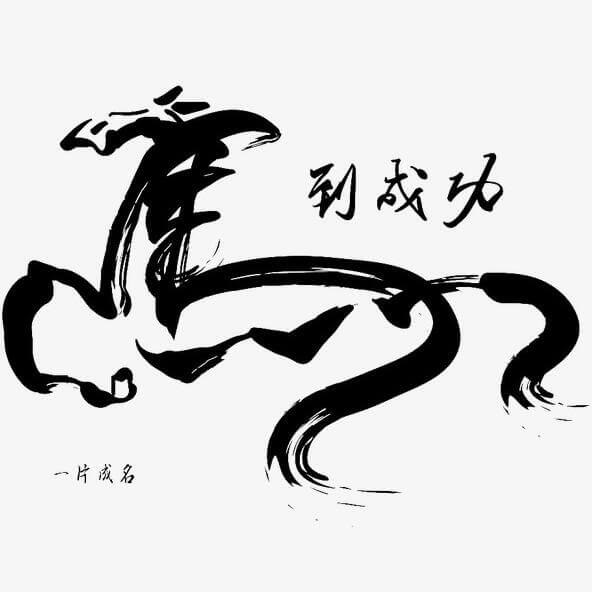 馬到成功
一片成名